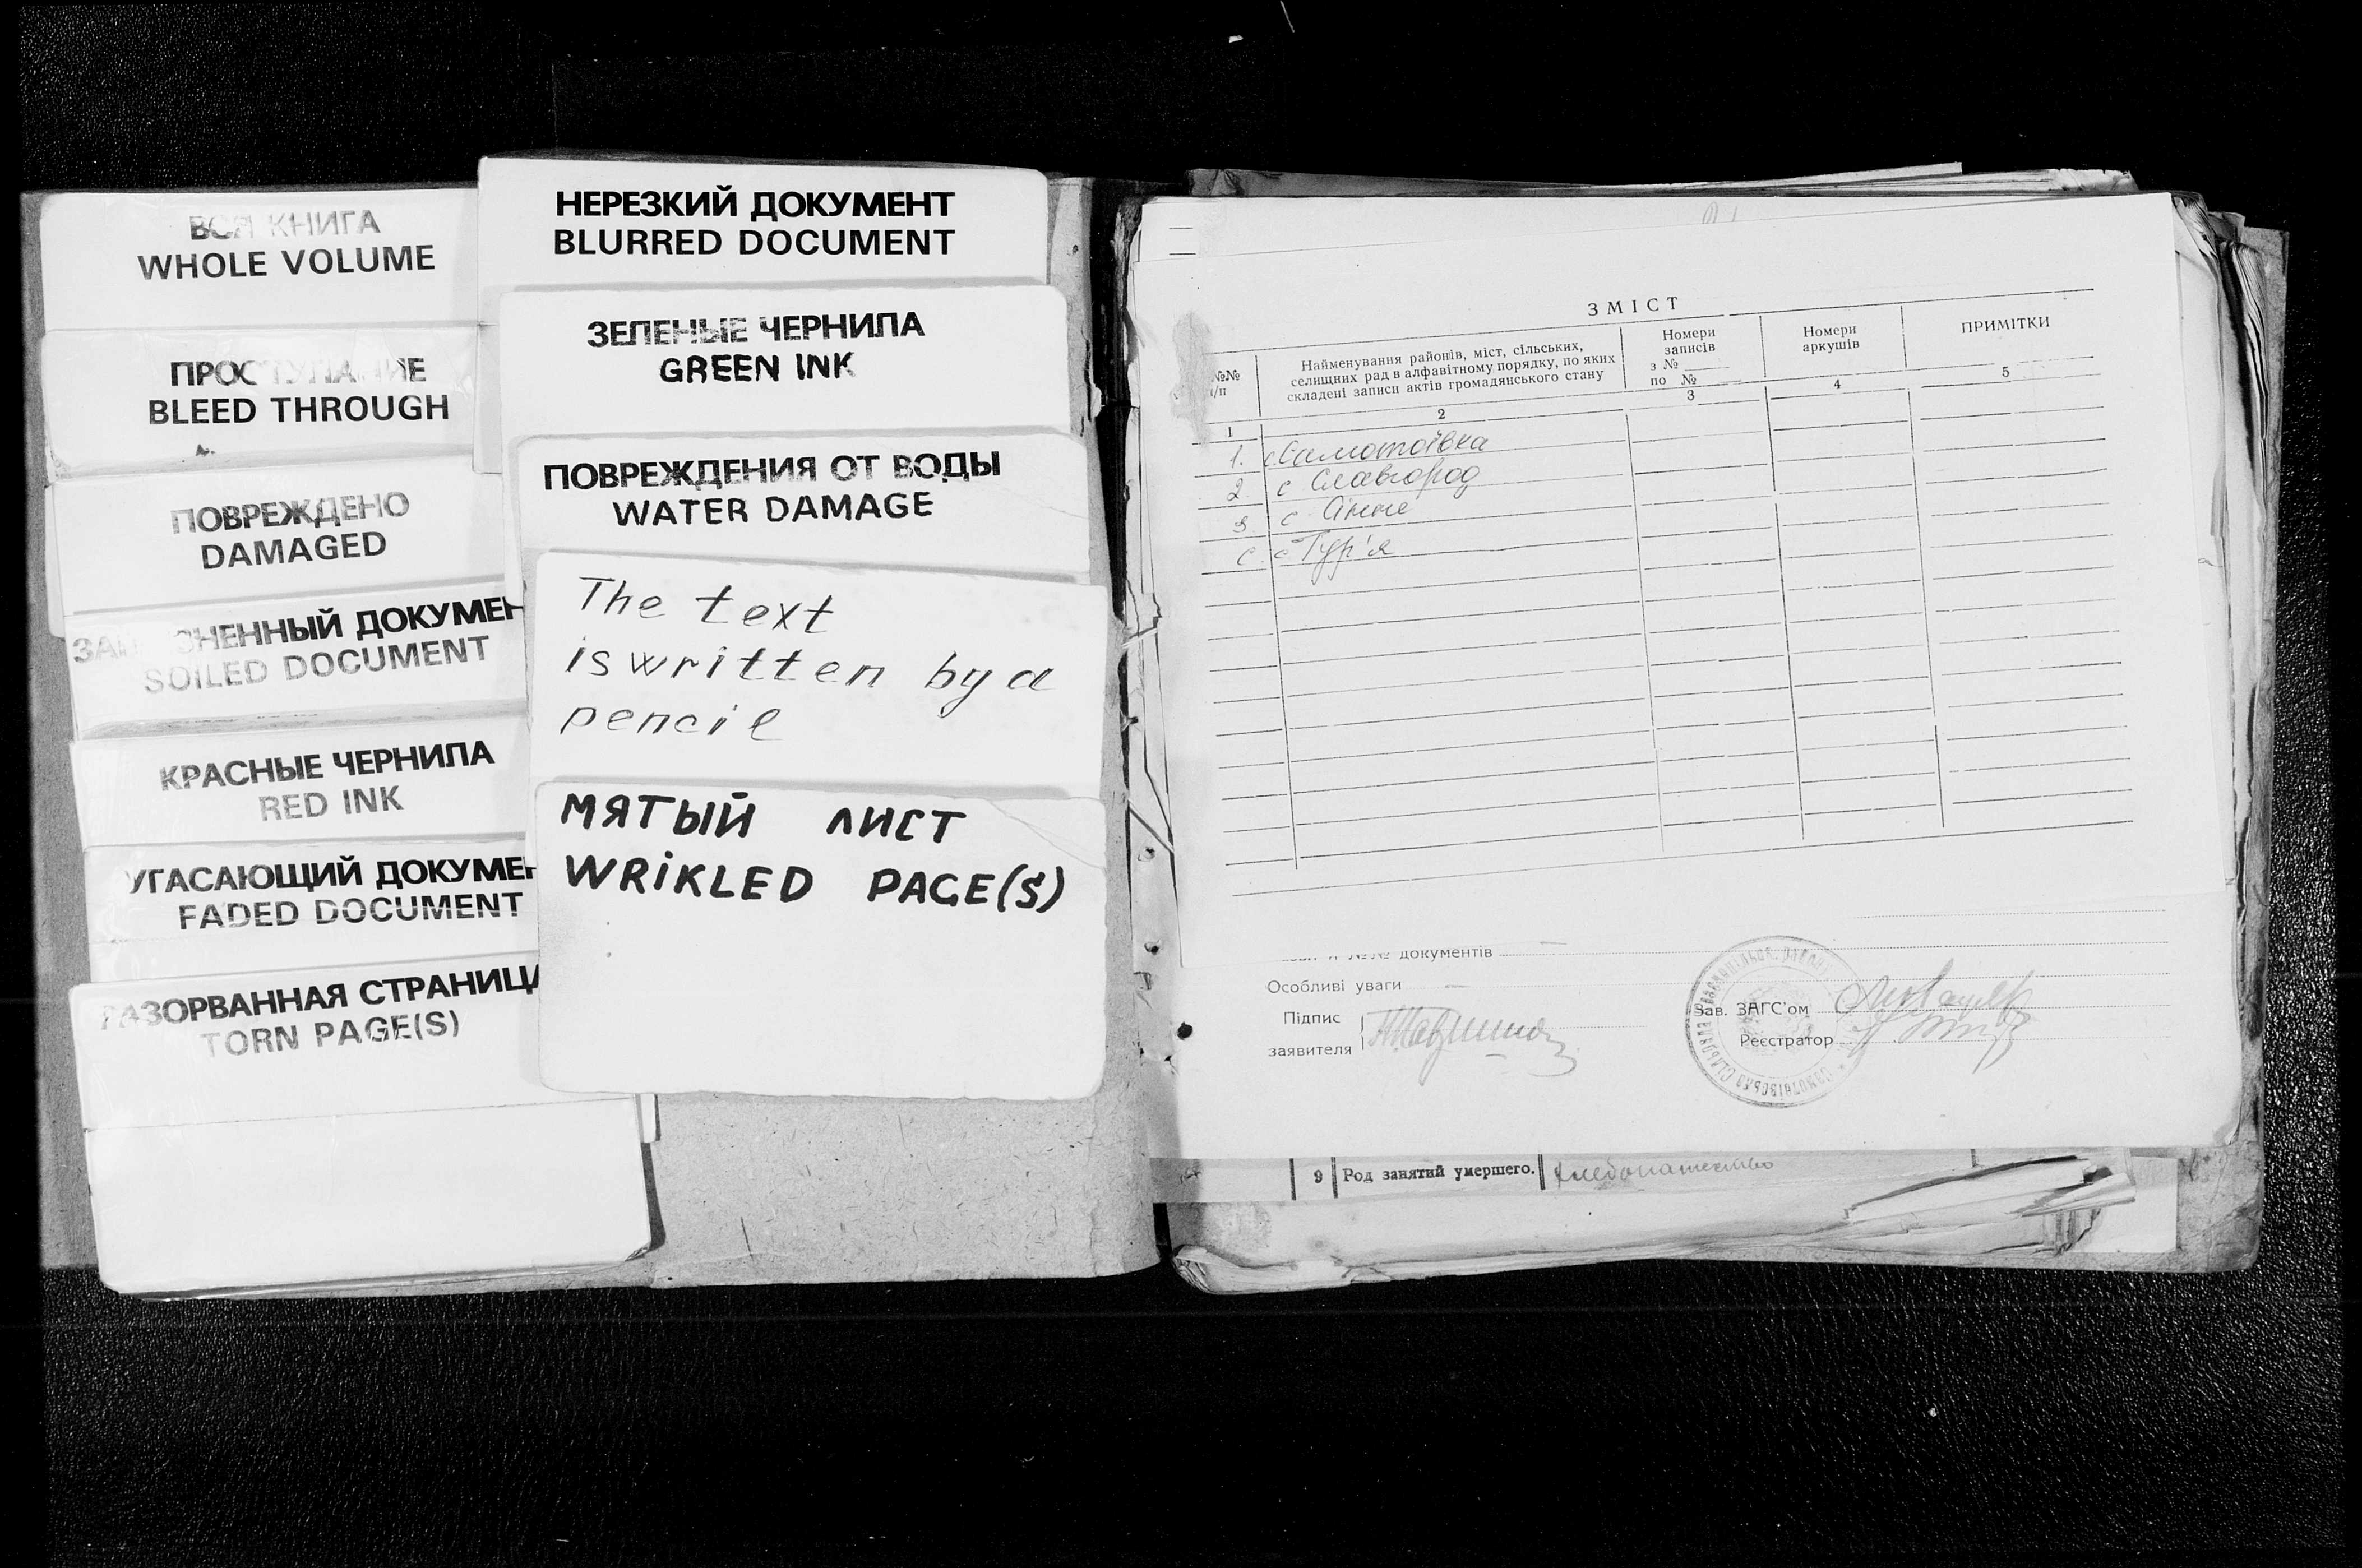 ВСЯ КНИГА
WHOLE VOLUME
ПРОСТУПАНИЕ
BLEED THROUGH
ПОВРЕЖДЕНО
DAMAGED
ЗАГРЯЗНЕННЫЙ ДОКУМЕН
SOILED DOCUMENT
КРАСНЫЕ ЧЕРНИЛА
RED INK
УГАСАЮЩИЙ ДОКУМЕН
FADED DOCUMENT
РАЗОРВАННАЯ СТРАНИЦА
TORN PAGE(S)
НЕРЕЗКИЙ ДОКУМЕНТ
BLURRED DOCUMENT
ЗЕЛЕНЫЕ ЧЕРНИЛА
GREEN INK
ПОВРЕЖДЕНИЯ ОТ ВОДЫ
WATER DAMAGE
The text
is written by a
pencil
МЯТЫЙ ЛИСТ
WRIKLED PAGE(S)
ЗМІСТ
№№ п/п
Найменування районів, міст, сільських,
селищних рад в алфавітному порядку, по яких
складені записи актів громадянського стану
Номери
записів
з №
по №
Номери
аркушів
ПРИМІТКИ
1 2 3 4 5
1. с. Самотоївка
2. с Славгород
3 с Сінне
с. с Тур'я
№№ документів
Особливі уваги
Підпис
заявителя
Зав. ЗАГС'ом
Реєстратор
9 Род занятий умершего. хлебопашество